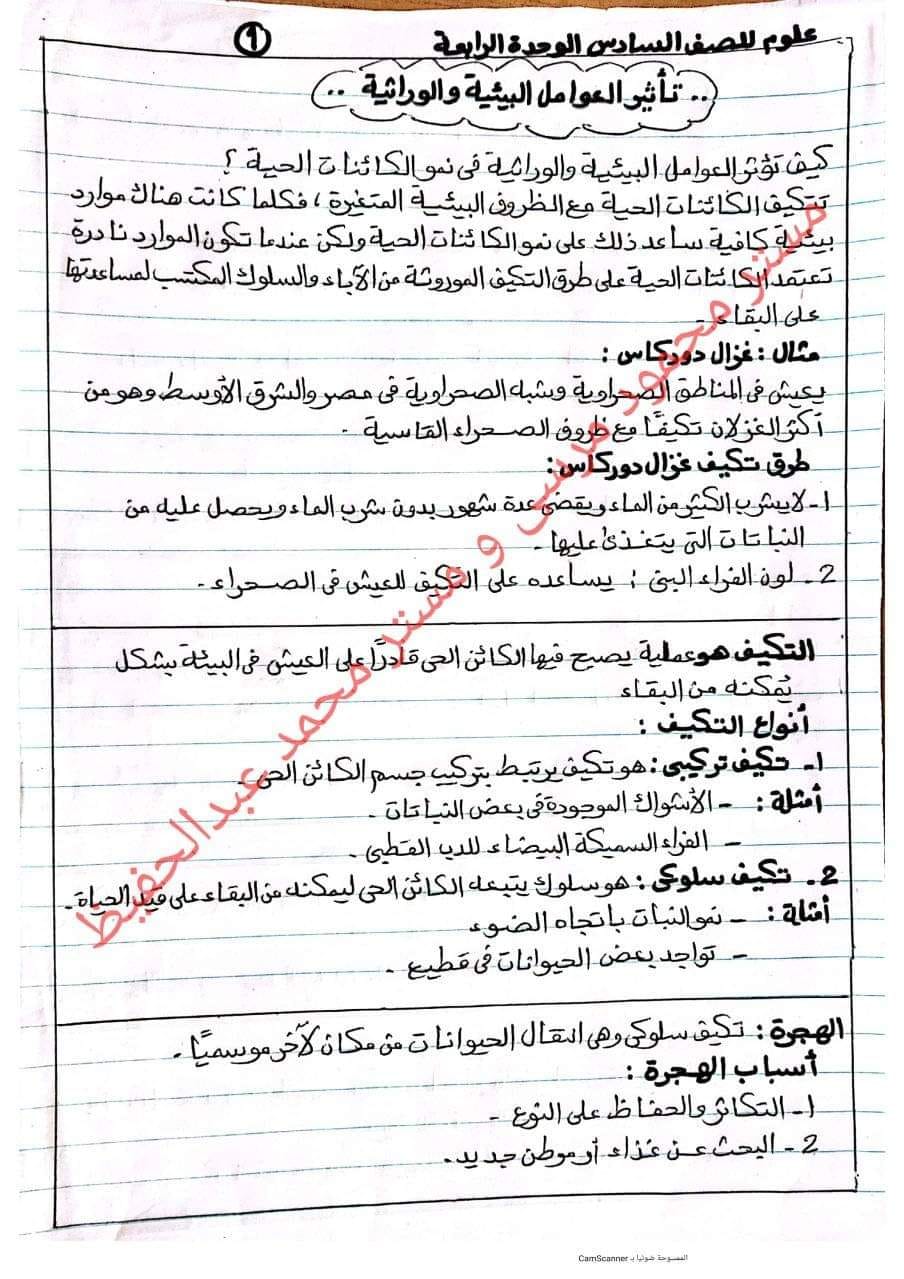 علوم للصف السادس الوحدة الرابعة ①
.. تأثير العوامل البيئية والوراثية ..
كيف تؤثر العوامل البيئية والوراثية فى نمو الكائنات الحية ؟
تتكيف الكائنات الحية مع الظروف البيئية المتغيرة ، فكلما كانت هناك موارد
بيئية كافية ساعد ذلك على نمو الكائنات الحية ولكن عندما تكون الموارد نادرة
تعتمد الكائنات الحية على طرق التكيف الموروثة من الآباء والسلوك المكتسب لمساعدتها
على البقاء .
مثال : غزال دوركاس :
يعيش فى المناطق الصحراوية وشبه الصحراوية فى مصر والشرق الأوسط وهو من
أكثر الغزلان تكيفًا مع ظروف الصحراء القاسية .
طرق تكيف غزال دوركاس :
1- لا يشرب الكثير من الماء ويقضى عدة شهور بدون شرب الماء ويحصل عليه من
النباتات التى يتغذى عليها .
2- لون الفراء البنى : يساعده على التكيف للعيش فى الصحراء .
التكيف هو عملية يصبح فيها الكائن الحى قادرًا على العيش فى البيئة بشكل
يُمكنه من البقاء
أنواع التكيف :
1- تكيف تركيبى : هو تكيف يرتبط بتركيب جسم الكائن الحى .
أمثلة : - الأشواك الموجودة فى بعض النباتات .
- الفراء السميكة البيضاء للدب القطبى .
2- تكيف سلوكى : هو سلوك يتبعه الكائن الحى ليمكنه من البقاء على قيد الحياة .
أمثلة : - نمو النبات باتجاه الضوء
- تواجد بعض الحيوانات فى قطيع .
الهجرة : تكيف سلوكى وهى انتقال الحيوانات من مكان لآخر موسميًا .
أسباب الهجرة :
1- التكاثر والحفاظ على النوع .
2- البحث عن غذاء أو موطن جديد .
مستر محمود مرسى و مستر محمد عبدالحفيظ
الممسوحة ضوئيا بـ CamScanner